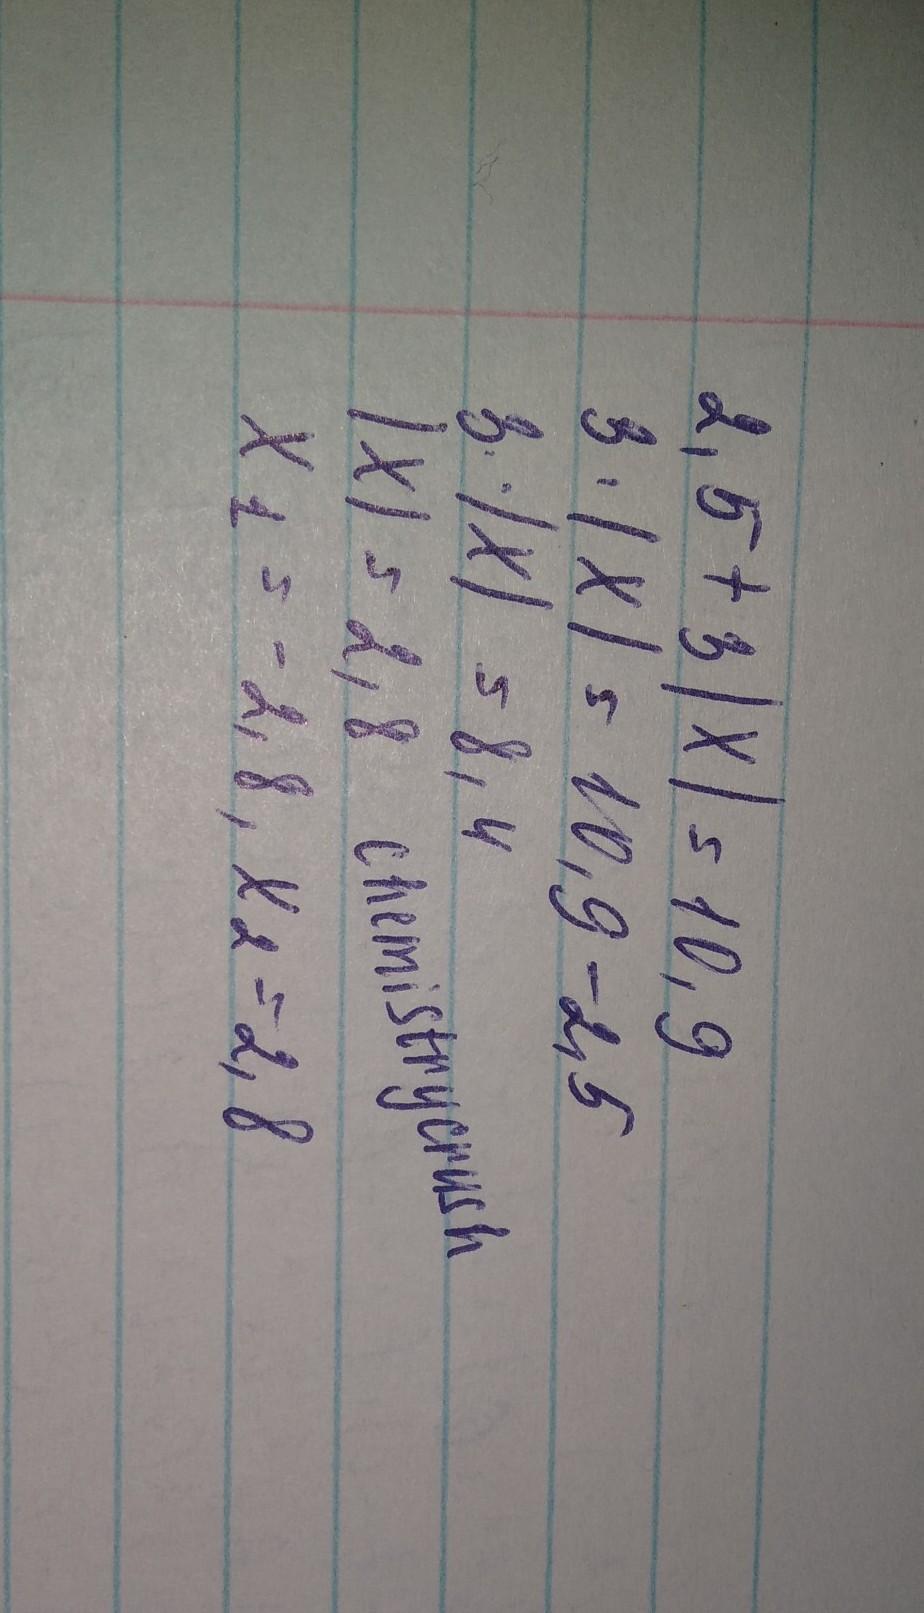 2,5+3|x|=10,9
3·|x|=10,9-2,5
3·|x|=8,4
|x|=2,8 chemistrycrush
x1=-2,8, x2=2,8